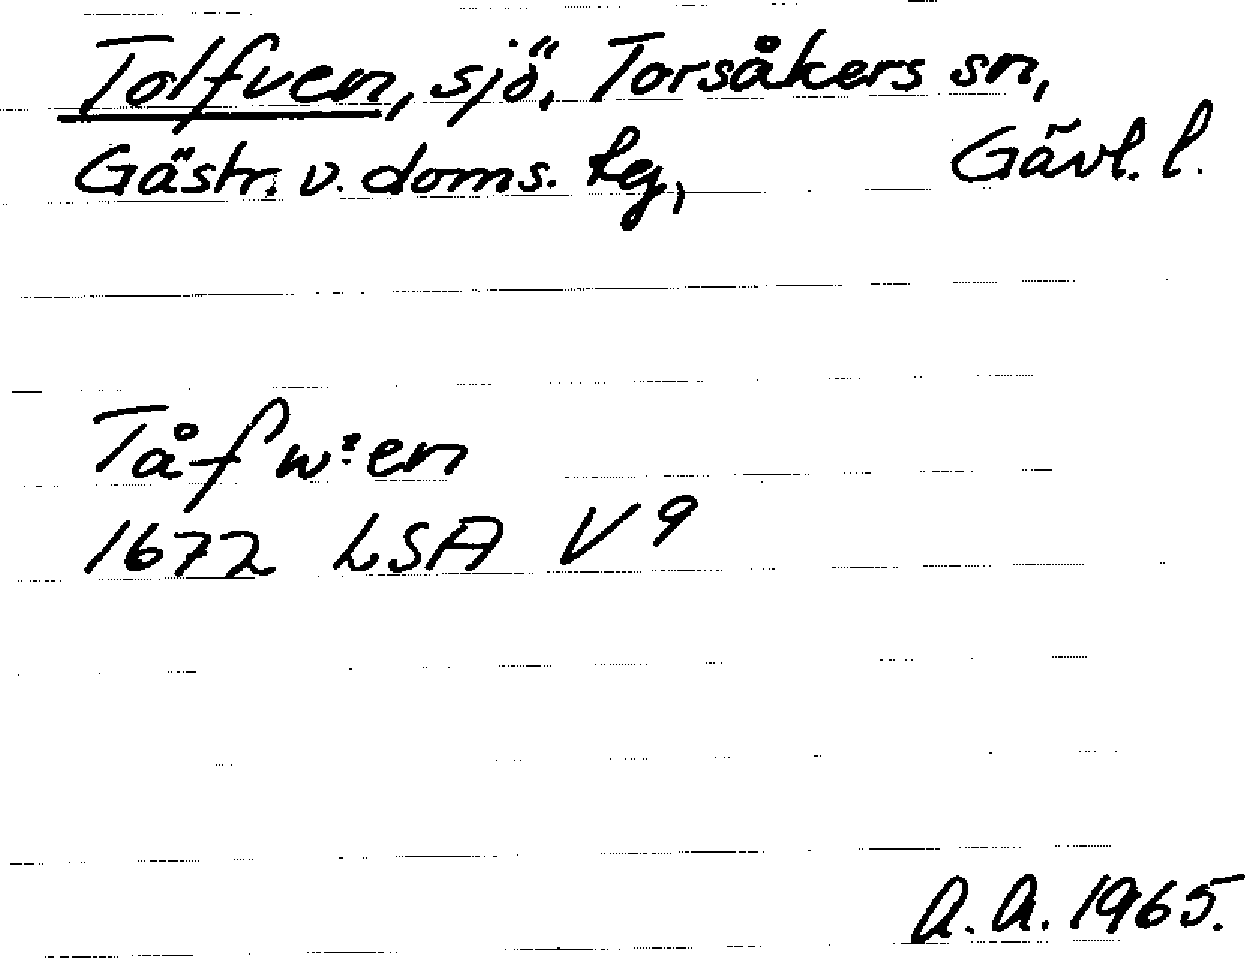 Tolfven, sjö, Torsåkers sn,
Gästr. v. doms. tg, Gävl. l.
Tåfw:en
1672 LSA V 9
A.A. 1965.